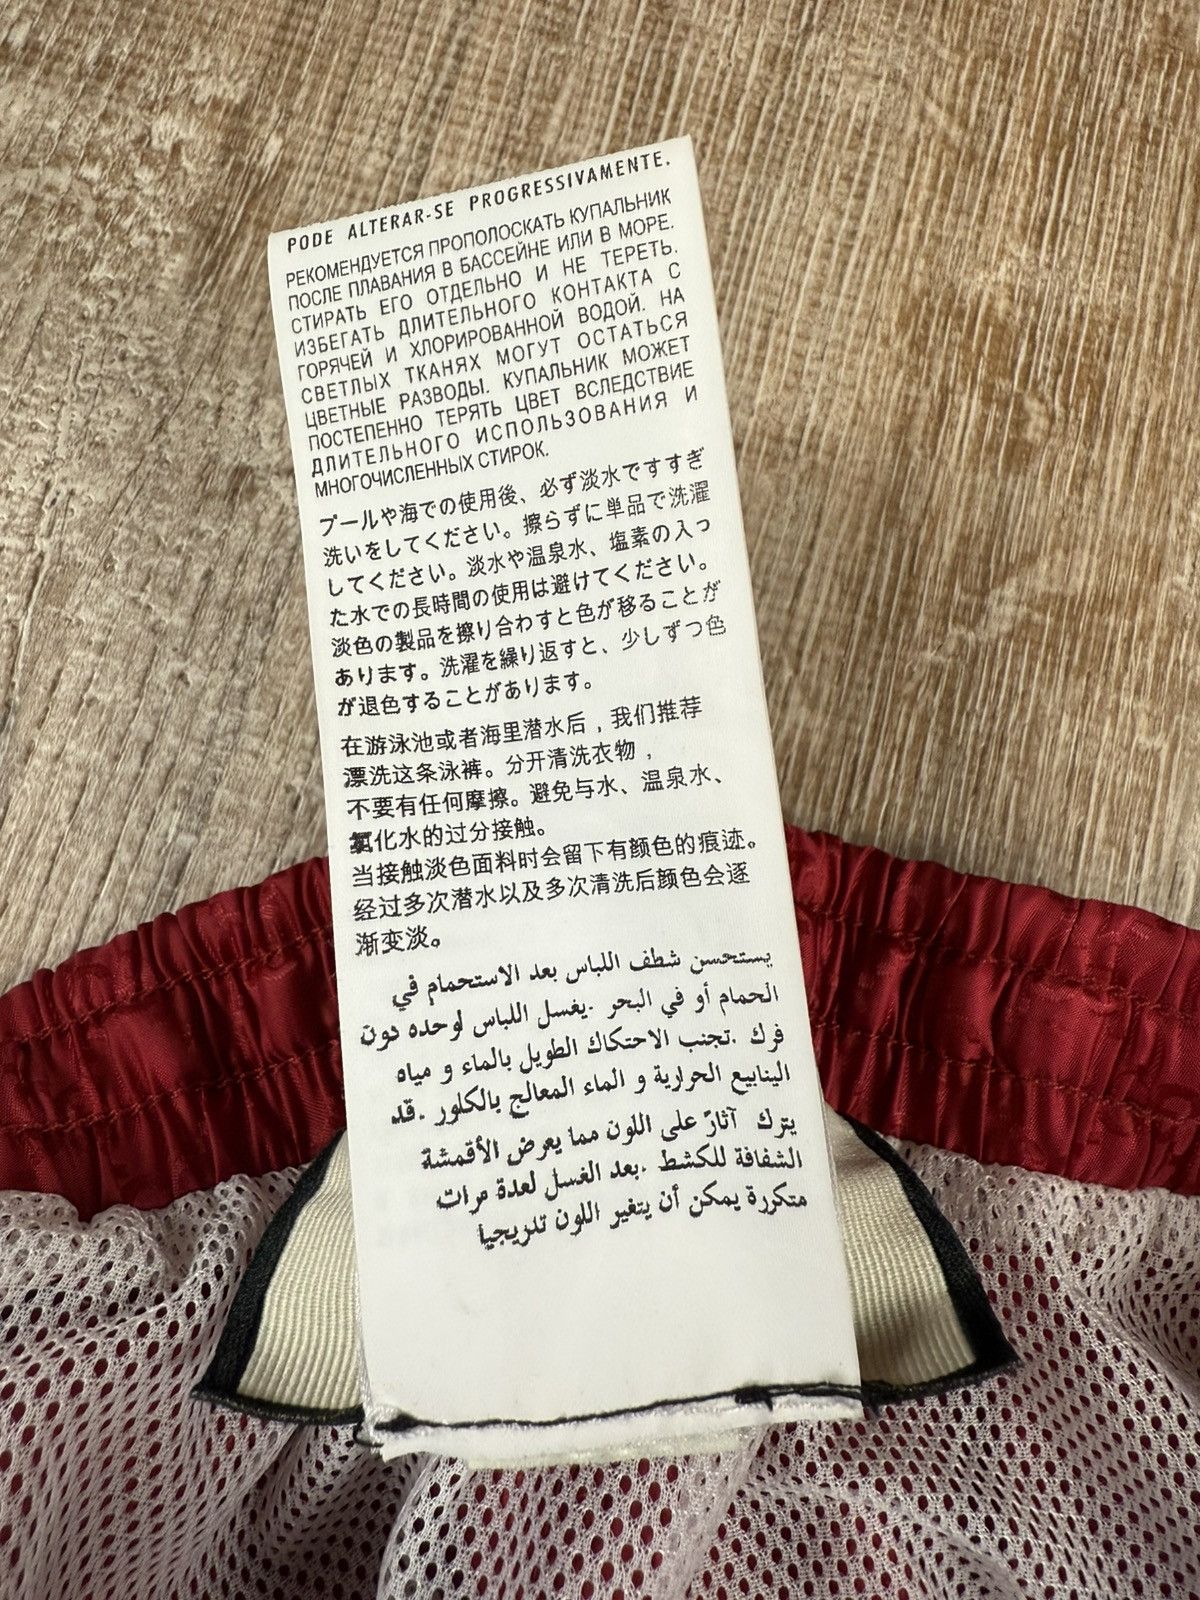 PODE ALTERAR-SE PROGRESSIVAMENTE.
РЕКОМЕНДУЕТСЯ ПРОПОЛОСКАТЬ КУПАЛЬНИК
ПОСЛЕ ПЛАВАНИЯ В БАССЕЙНЕ ИЛИ В МОРЕ.
СТИРАТЬ ЕГО ОТДЕЛЬНО И НЕ ТЕРЕТЬ.
ИЗБЕГАТЬ ДЛИТЕЛЬНОГО КОНТАКТА С
ГОРЯЧЕЙ И ХЛОРИРОВАННОЙ ВОДОЙ. НА
СВЕТЛЫХ ТКАНЯХ МОГУТ ОСТАТЬСЯ
ЦВЕТНЫЕ РАЗВОДЫ. КУПАЛЬНИК МОЖЕТ
ПОСТЕПЕННО ТЕРЯТЬ ЦВЕТ ВСЛЕДСТВИЕ
ДЛИТЕЛЬНОГО ИСПОЛЬЗОВАНИЯ И
МНОГОЧИСЛЕННЫХ СТИРОК.
プールや海での使用後、必ず淡水ですすぎ
洗いをしてください。擦らずに単品で洗濯
してください。淡水や温泉水、塩素の入っ
た水での長時間の使用は避けてください。
淡色の製品を擦り合わすと色が移ることが
あります。洗濯を繰り返すと、少しずつ色
が退色することがあります。
在游泳池或者海里潜水后，我们推荐
漂洗这条泳裤。分开清洗衣物，
不要有任何摩擦。避免与水、温泉水、
氯化水的过分接触。
当接触淡色面料时会留下有颜色的痕迹。
经过多次潜水以及多次清洗后颜色会逐
渐变淡。
يستحسن شطف اللباس بعد الاستحمام في
الحمام أو في البحر .يغسل اللباس لوحده دون
فرك .تجنب الاحتكاك الطويل بالماء و مياه
الينابيع الحرارية و الماء المعالج بالكلور .قد
يترك آثارً على اللون مما يعرض الأقمشة
الشفافة للكشط .بعد الغسل لعدة مرات
متكررة يمكن أن يتغير اللون تدريجيا